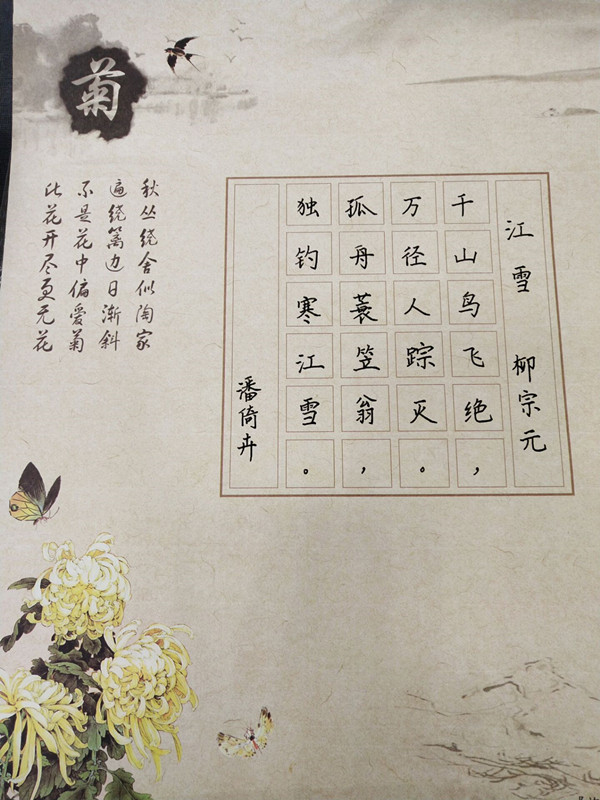 菊
秋丛绕舍似陶家
遍绕篱边日渐斜
不是花中偏爱菊
此花开尽更无花
江雪 柳宗元
千山鸟飞绝，
万径人踪灭。
孤舟蓑笠翁，
独钓寒江雪。
潘倚卉